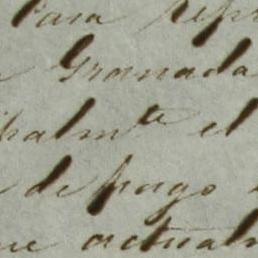 Para repr
Granada
palmte el
de pago
ue actualm